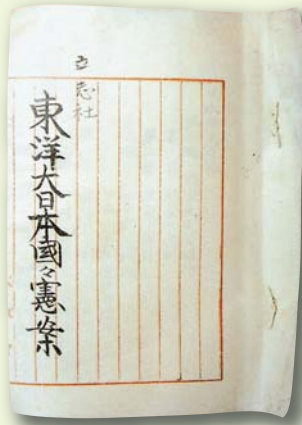 立志社
東洋大日本國々憲案